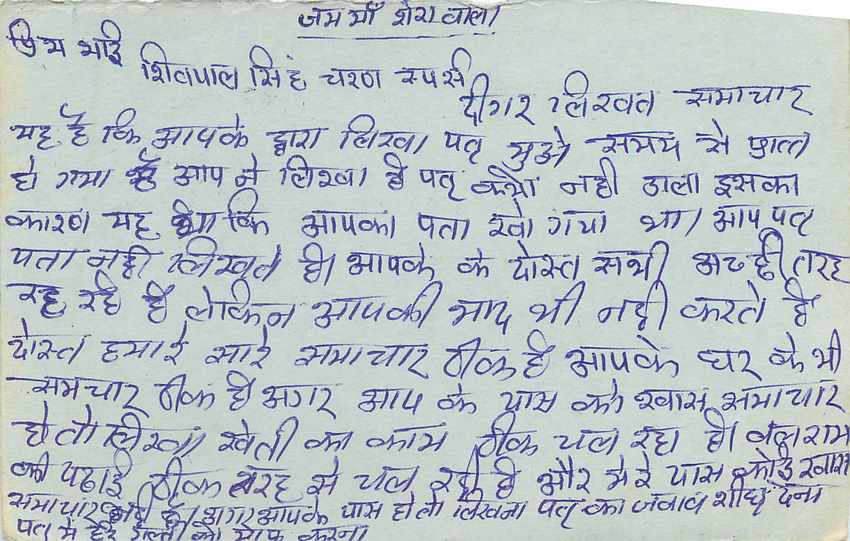 जय माँ शेरा वाली
प्रिय भाई
शिवपाल सिंह चरण स्पर्स
दीगर लिखत समाचार
यह है कि आपके द्वारा लिखा पत्र मुझे समय से प्राप्त
हो गया है आप ने लिखा है पत्र क्यों नही डाला इसका
कारण यह था कि आपका पता खो गया था। आप पत्र
पता नही लिखते है। आपके के दोस्त सभी अच्छी तरह
रह रहे है लेकिन आपकी याद भी नही करते है
दोस्त हमारे सारे समाचार ठीक है आपके घर के भी
समचार ठीक है अगर आप के पास को खास समाचार
हो तो लिखा खेती का काम ठीक चल रहा है। बलराम
की पढाई ठीक तरह से चल रही है और मेरे पास कोई खास
समाचार नही है। अगर आपके पास हो तो लिखना पत्र का जवाव शीघ्र देना
पत्र मे गलती को माफ करना